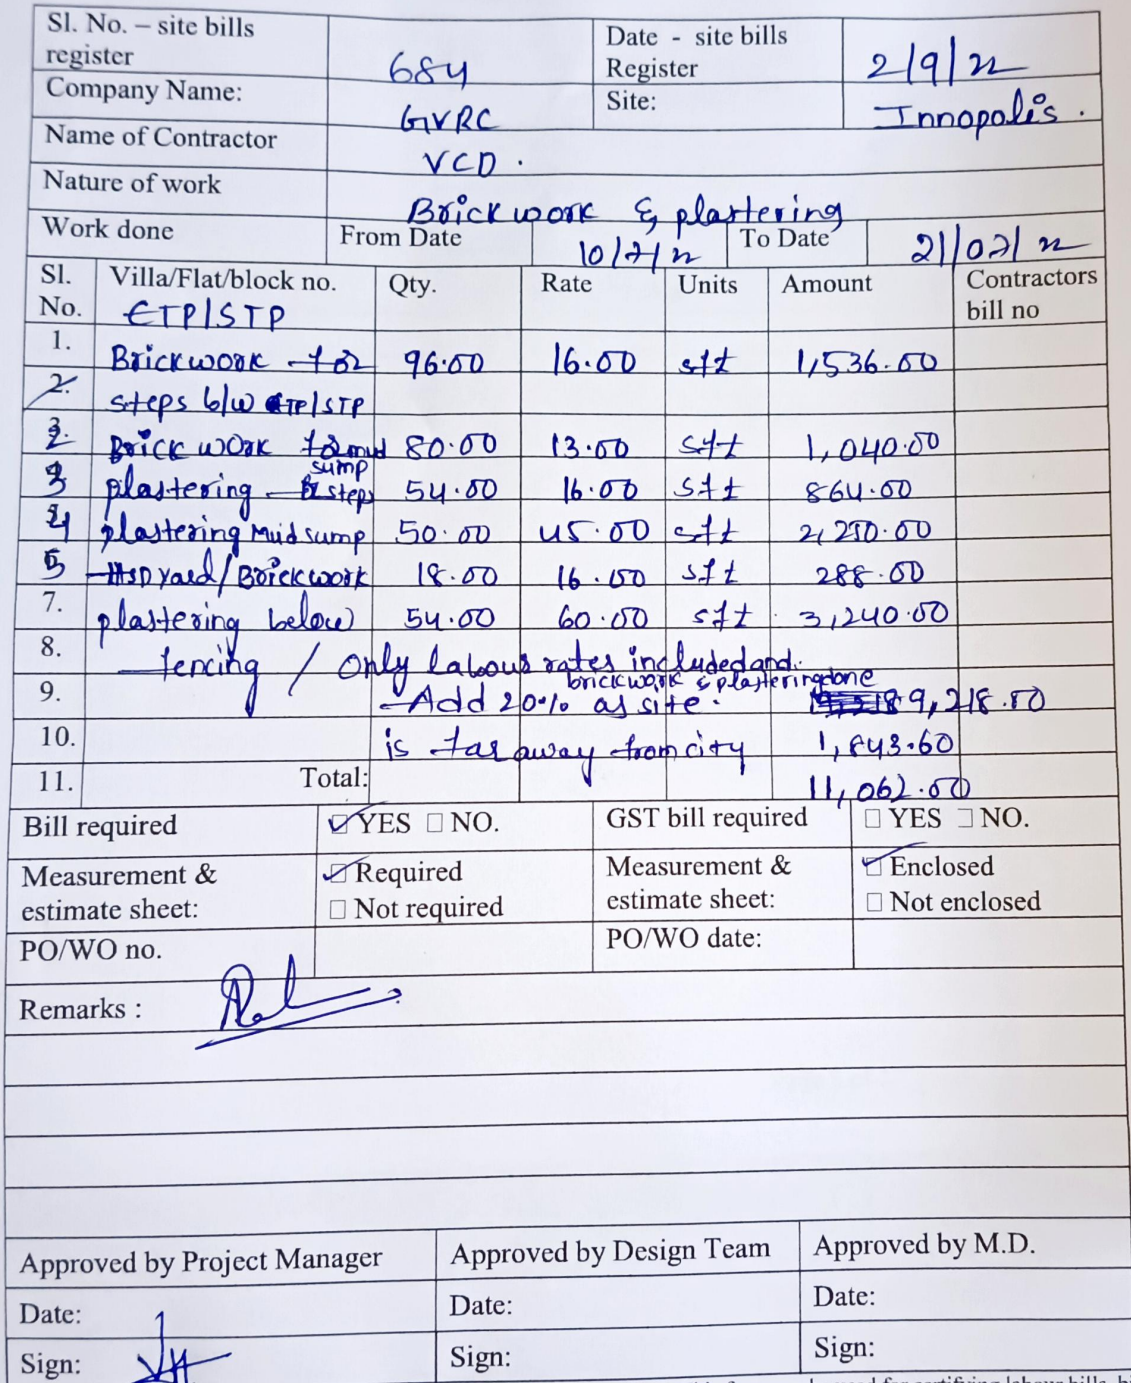 Sl. No. – site bills register 684 Date - site bills Register 2/9/22
Company Name: GVRC Site: Innopolis.
Name of Contractor VCD.
Nature of work Brickwork & plastering
Work done From Date 10/2/22 To Date 21/02/22
Sl. No. Villa/Flat/block no. Qty. Rate Units Amount Contractors bill no
ETP/STP
1. Brickwork for 96.00 16.00 sft 1,536.00
2. steps b/w ETP/STP
2. Brick work for mud sump 80.00 13.00 sft 1,040.00
3 plastering steps 54.00 16.00 sft 864.00
4 plastering Mud sump 50.00 45.00 sft 2,250.00
5 HSD yard/Brickwork 18.00 16.00 sft 288.00
7. plastering below 54.00 60.00 sft 3,240.00
8. fencing / Only labour rates included and.
brickwork & plastering done
9. Add 20% as site. 9,218.00
10. is far away from city 1,843.60
11. Total: 11,062.00
Bill required YES NO. GST bill required YES NO.
Measurement & estimate sheet: Required Not required Measurement & estimate sheet: Enclosed Not enclosed
PO/WO no. PO/WO date:
Remarks :
Approved by Project Manager Approved by Design Team Approved by M.D.
Date: Date: Date:
Sign: Sign: Sign: